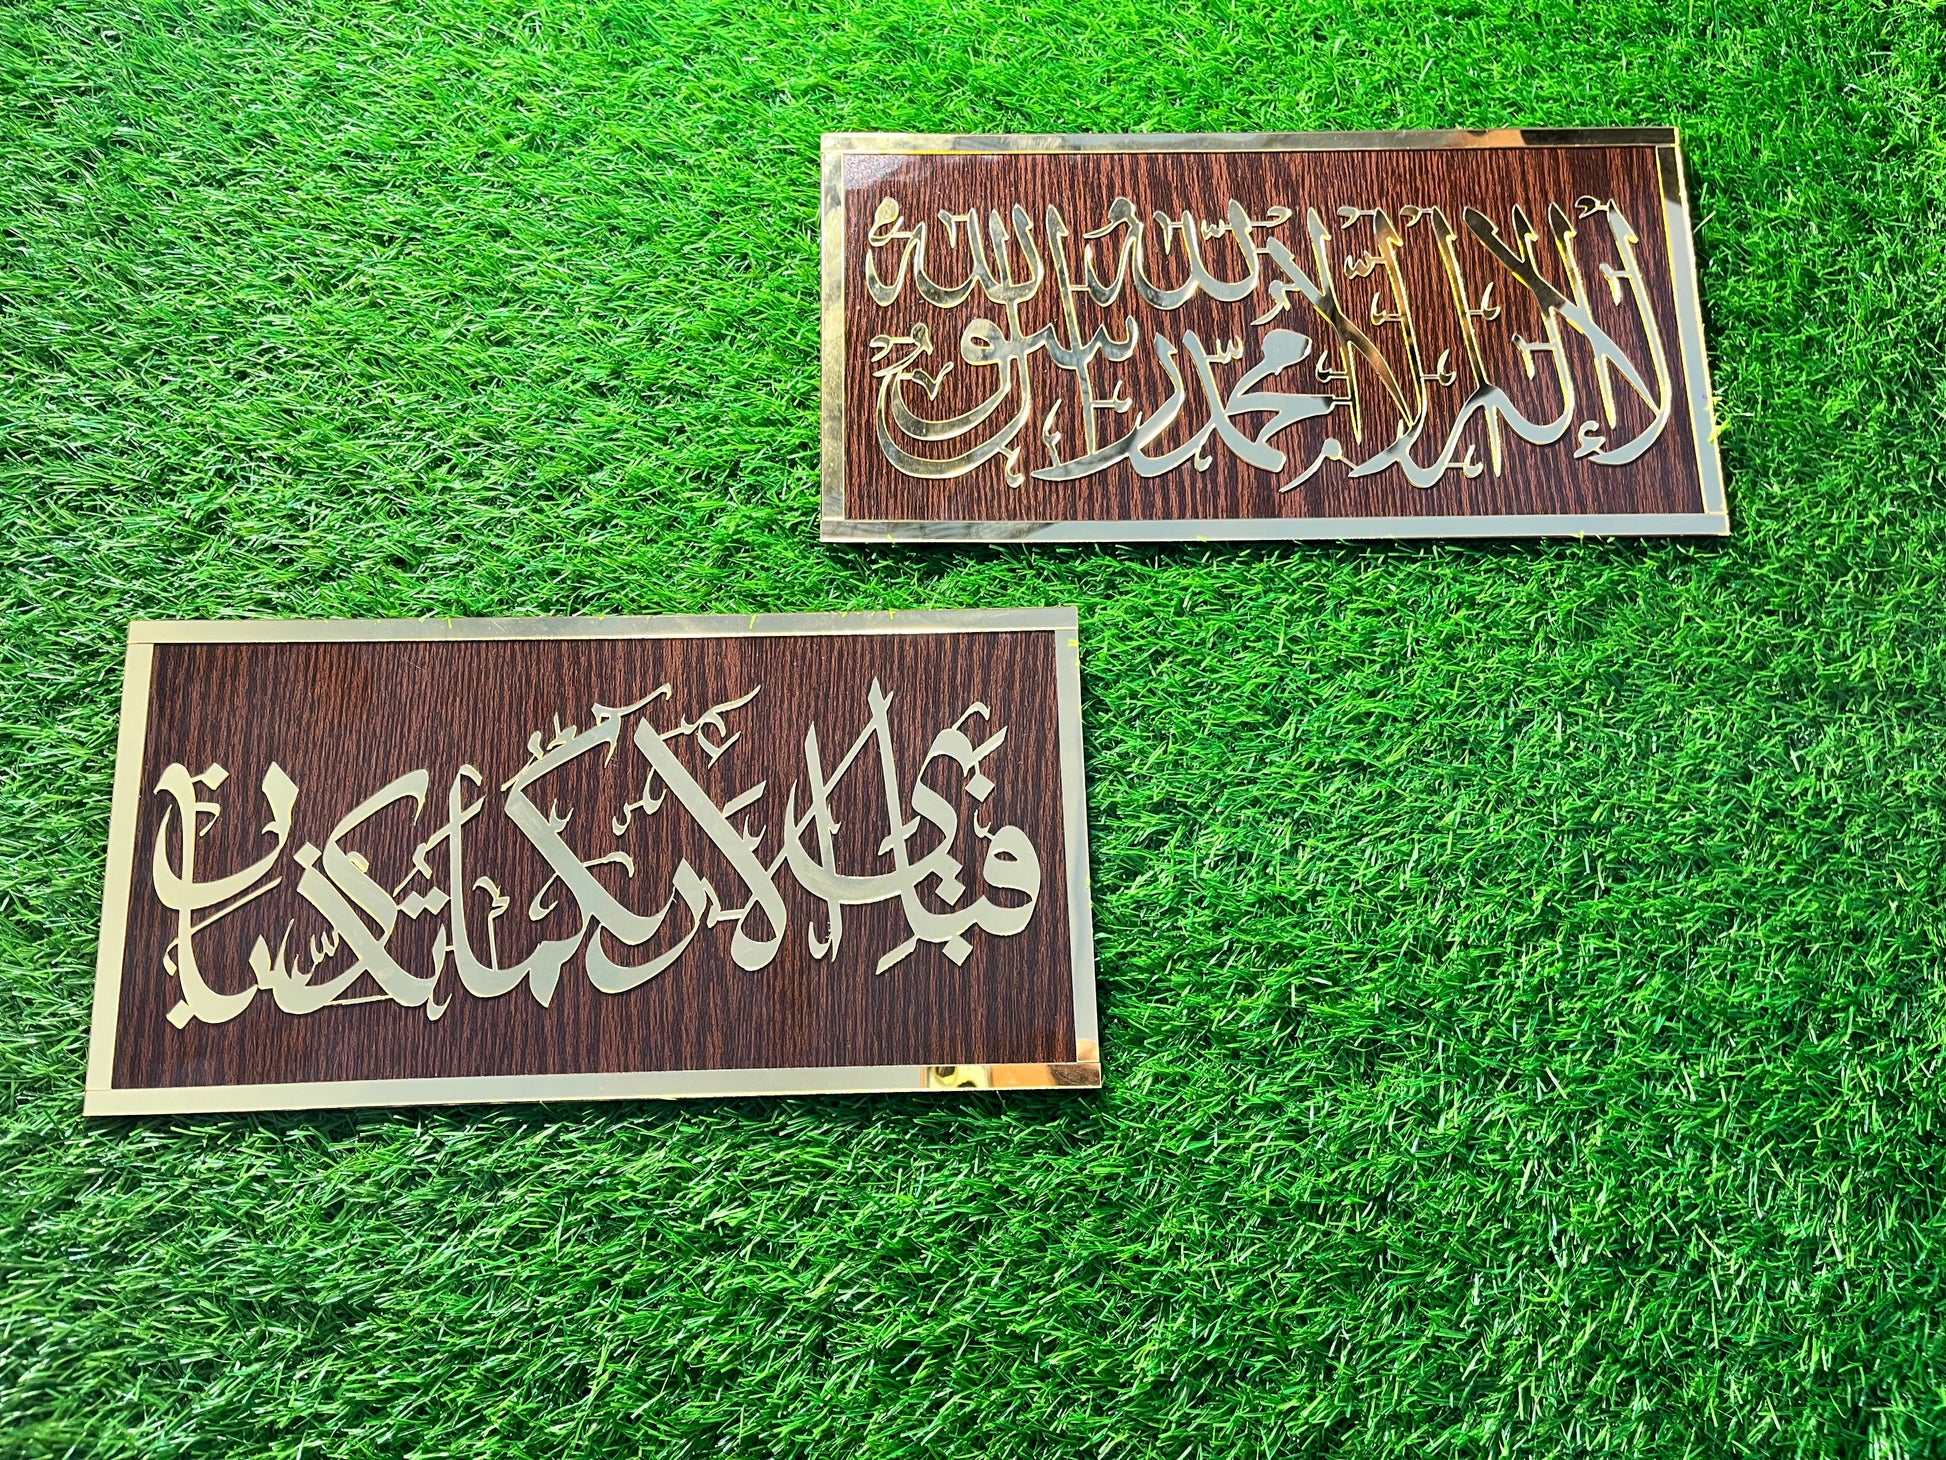 لَا إِلٰهَ إِلَّا اللّٰهُ مُحَمَّدٌ رَسُولُ اللّٰهِ
فَبِأَيِّ آلَاءِ رَبِّكُمَا تُكَذِّبَانِ